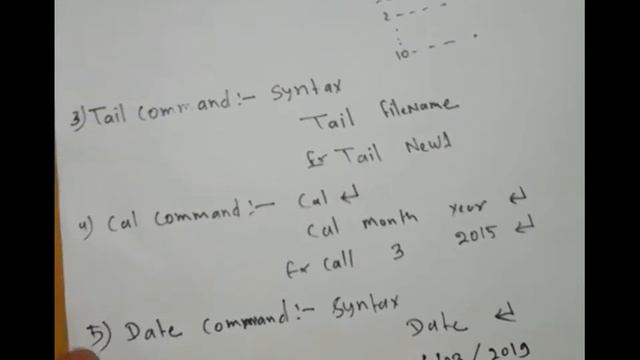 2 - - - -
10 - - - -
3) Tail command:- Syntax
Tail fileName
Ex Tail New1
4) Cal command:- Cal ↵
Cal month year ↵
Ex Call 3 2015 ↵
5) Date command:- Syntax
Date ↵
/2019